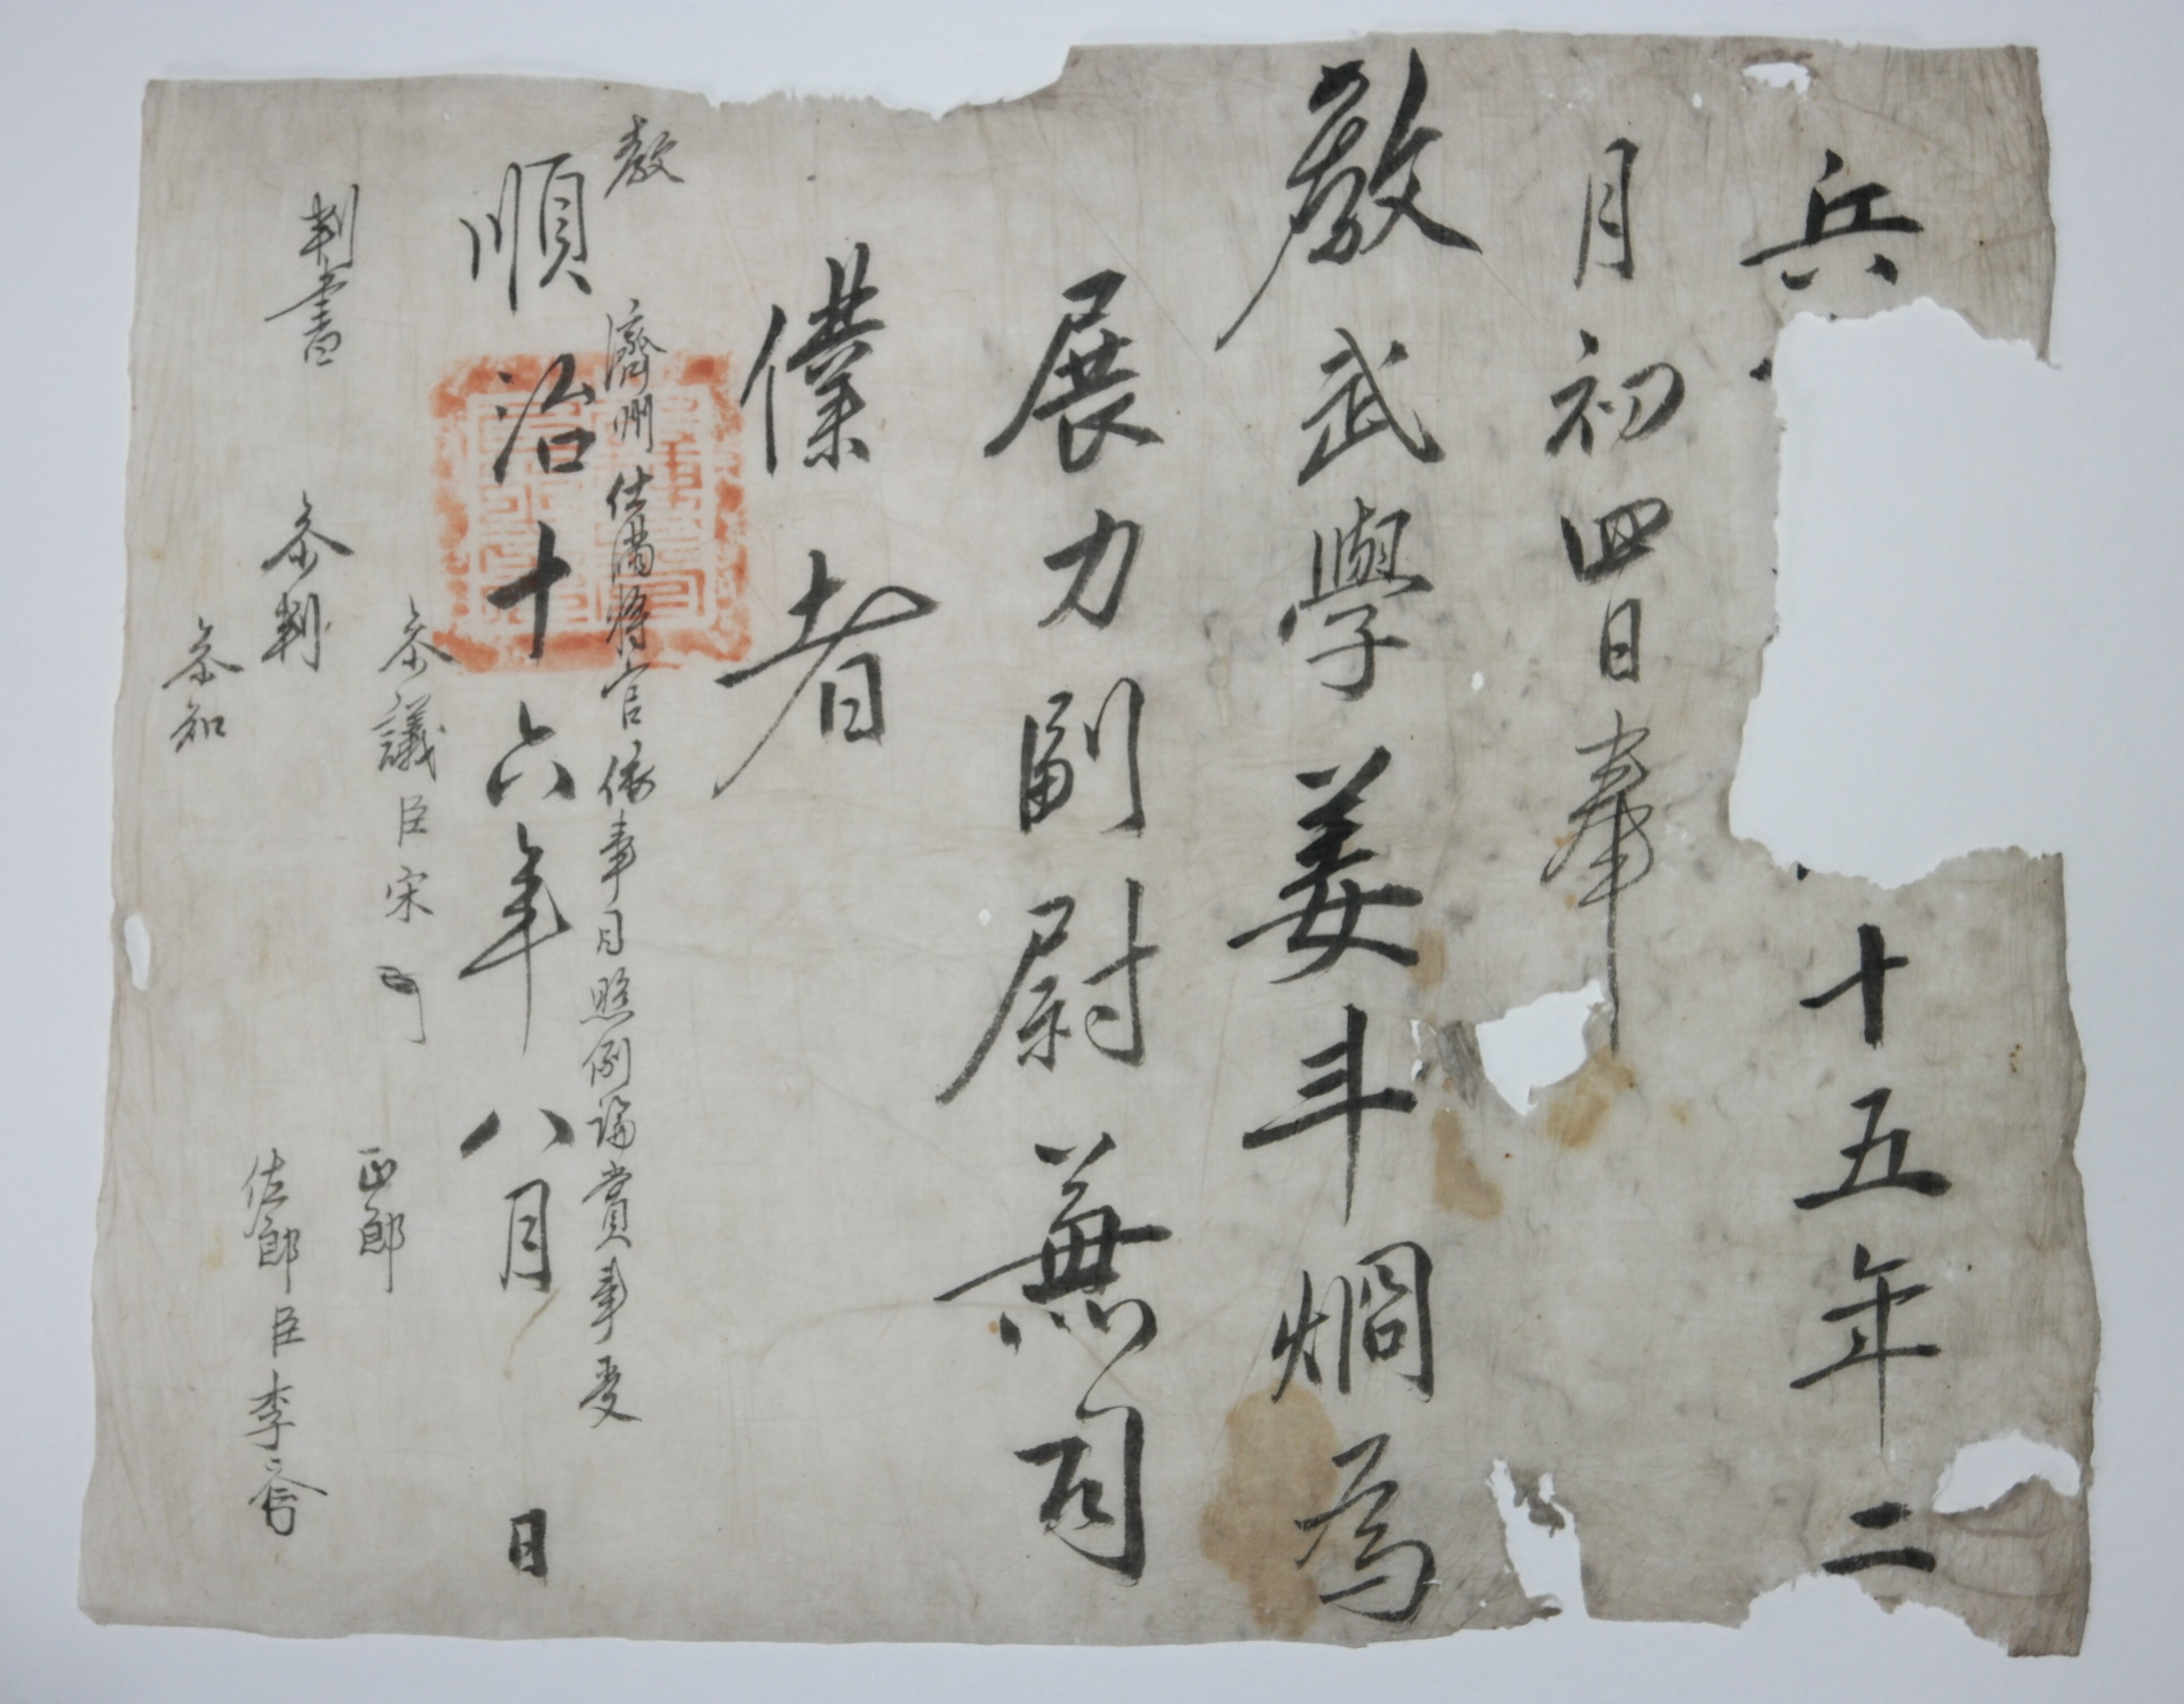 兵 十五年二
月初四日奉
敎武學姜斗烱爲
展力副尉兼司
僕者
敎
濟州仕滿將官依事目照例論賞事受
順治十六年八月 日
參議臣宋
正郞
判書 參判
佐郞臣李
參知